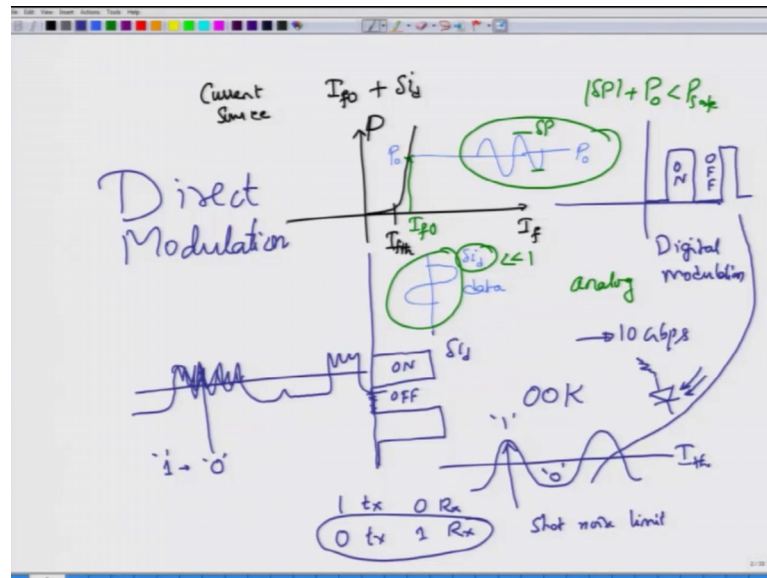 Edit View Insert Actions Tools Help
Current Source
I_{f0} + δi_d
|δP| + P_0 < P_{safe}
P
P_0
δP
P_0
ON
OFF
Direct Modulation
I_{fth}
I_{f0}
I_f
Digital modulation
δi_d << 1
data
analog
→ 10 Gbps
δi_d
ON
OFF
OOK
'1'
'0'
I_{th}
'1 → '0'
Shot noise limit
1 tx 0 Rx
0 tx 1 Rx